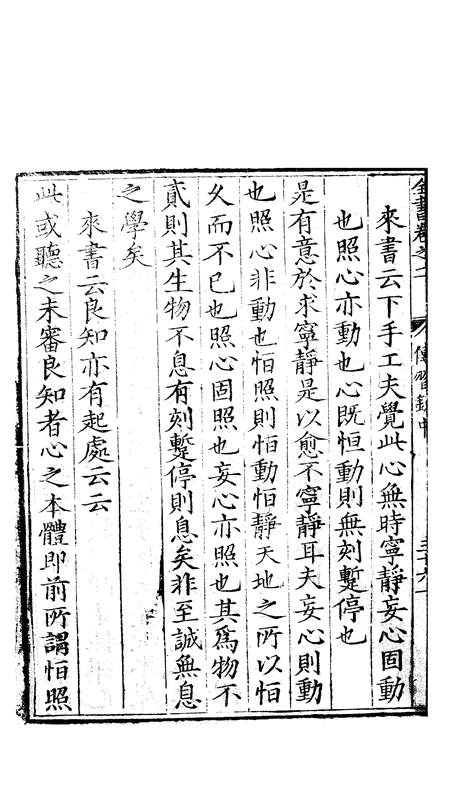 全書卷之二 傳習錄中
來書云下手工夫覺此心無時寧靜妄心固動
也照心亦動也心既恒動則無刻蹔停也
是有意於求寧靜是以愈不寧靜耳夫妄心則動
也照心非動也恒照則恒動恒靜天地之所以恒
久而不已也照心固照也妄心亦照也其爲物不
貳則其生物不息有刻蹔停則息矣非至誠無息
之學矣
來書云良知亦有起處云云
此或聽之未審良知者心之本體即前所謂恒照